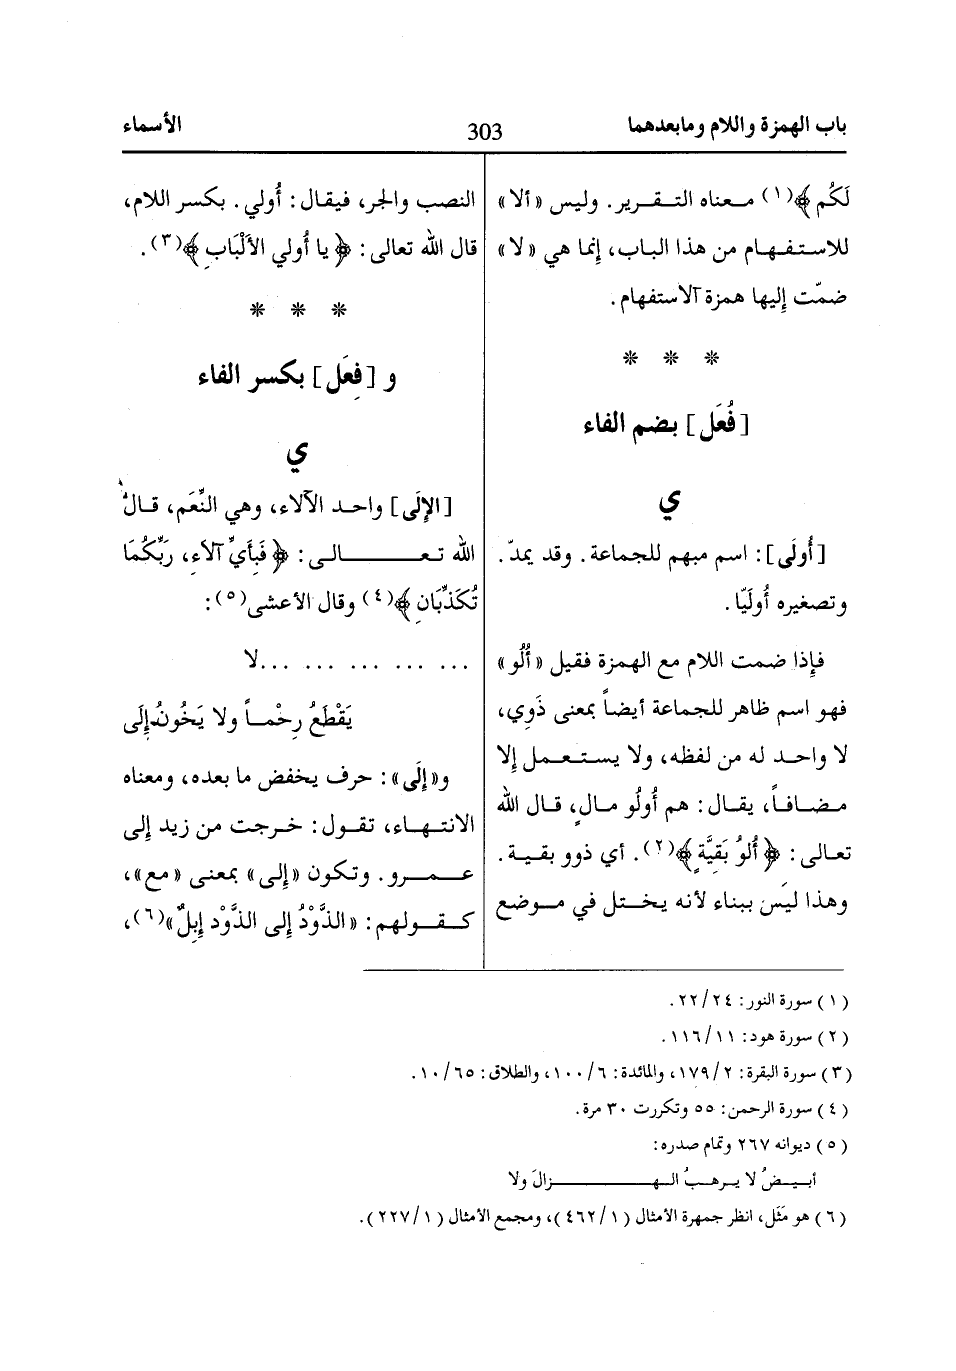 باب الهمزة واللام ومابعدهما
303
الأسماء
لَكُم ﴾(١) معناه التقرير. وليس «ألا»
للاستفهام من هذا الباب، إنما هي «لا»
ضمّت إليها همزة الاستفهام.
* * *
[فُعَل] بضم الفاء
ي
[أُولَى]: اسم مبهم للجماعة. وقد يمدّ.
وتصغيره أُولَيّا.
فإذا ضمت اللام مع الهمزة فقيل «أُلُو»
فهو اسم ظاهر للجماعة أيضاً بمعنى ذَوِي،
لا واحد له من لفظه، ولا يستعمل إلا
مضافاً، يقال: هم أُولُو مالٍ، قال الله
تعالى: ﴿ أُلوُ بَقيَّةٍ ﴾(٢). أي ذوو بقية.
وهذا ليَس ببناء لأنه يختل في موضع
النصب والجر، فيقال: أُولي. بكسر اللام،
قال الله تعالى: ﴿ يا أُولي الأَلْبَابِ ﴾(٣).
* * *
و [فِعَل] بكسر الفاء
ي
[الإِلَى] واحد الآلاء، وهي النِّعَم، قال
الله تعالى: ﴿ فَبأَيِّ آلاءِ، رَبِّكُمَا
تُكَذِّبَانِ ﴾(٤) وقال الأعشى(٥):
... ... ... ... ...لا
يَقْطَعُ رِحْماً ولا يَخُونُ إِلَى
و«إِلَى»: حرف يخفض ما بعده، ومعناه
الانتهاء، تقول: خرجت من زيد إلى
عمرو. وتكون «إلى» بمعنى «مع»،
كقولهم: «الذَّوْدُ إلى الذَّوْد إبِلٌ»(٦)،
(١) سورة النور: ٢٢/٢٤.
(٢) سورة هود: ١١٦/١١.
(٣) سورة البقرة: ١٧٩/٢، والمائدة: ١٠٠/٦، والطلاق: ١٠/٦٥.
(٤) سورة الرحمن: ٥٥ وتكررت ٣٠ مرة.
(٥) ديوانه ٢٦٧ وتمام صدره:
أبيضُ لا يرهبُ الهزالَ ولا
(٦) هو مَثَل، انظر جمهرة الأمثال (٤٦٢/١)، ومجمع الأمثال (٢٢٧/١).